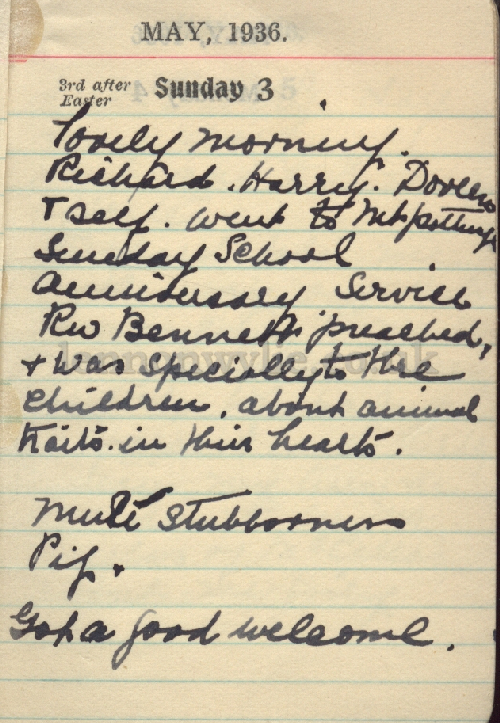 MAY, 1936.
3rd after
Easter
Sunday 3
Lovely morning.
Richard. Harry. Doreen
& self. went to Mt pottinger
Sunday School
Anniversary Service
Rev Bennett preached,
lennonwylie.co.uk
& was specially to the
children, about animal
traits in their hearts.
Mule Stubborness
Pig.
Got a good welcome.